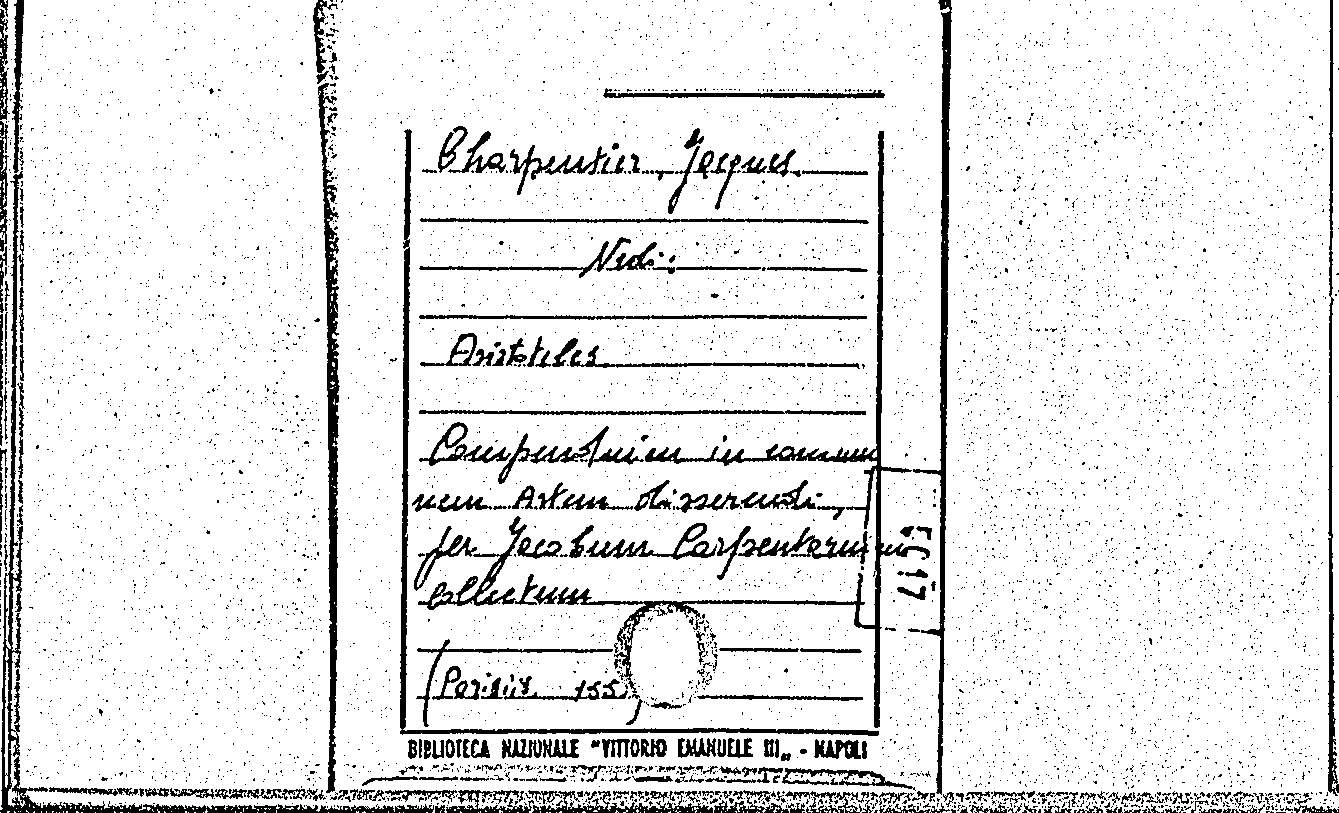 Charpentier, Jacques.
Vedi:
Aristoteles
Compendium in commu
nem Artem disserendi,
per Jacobum Carpentarium
collectum
(Parisiis 155)
BIBLIOTECA NAZIONALE "VITTORIO EMANUELE III„ - NAPOLI